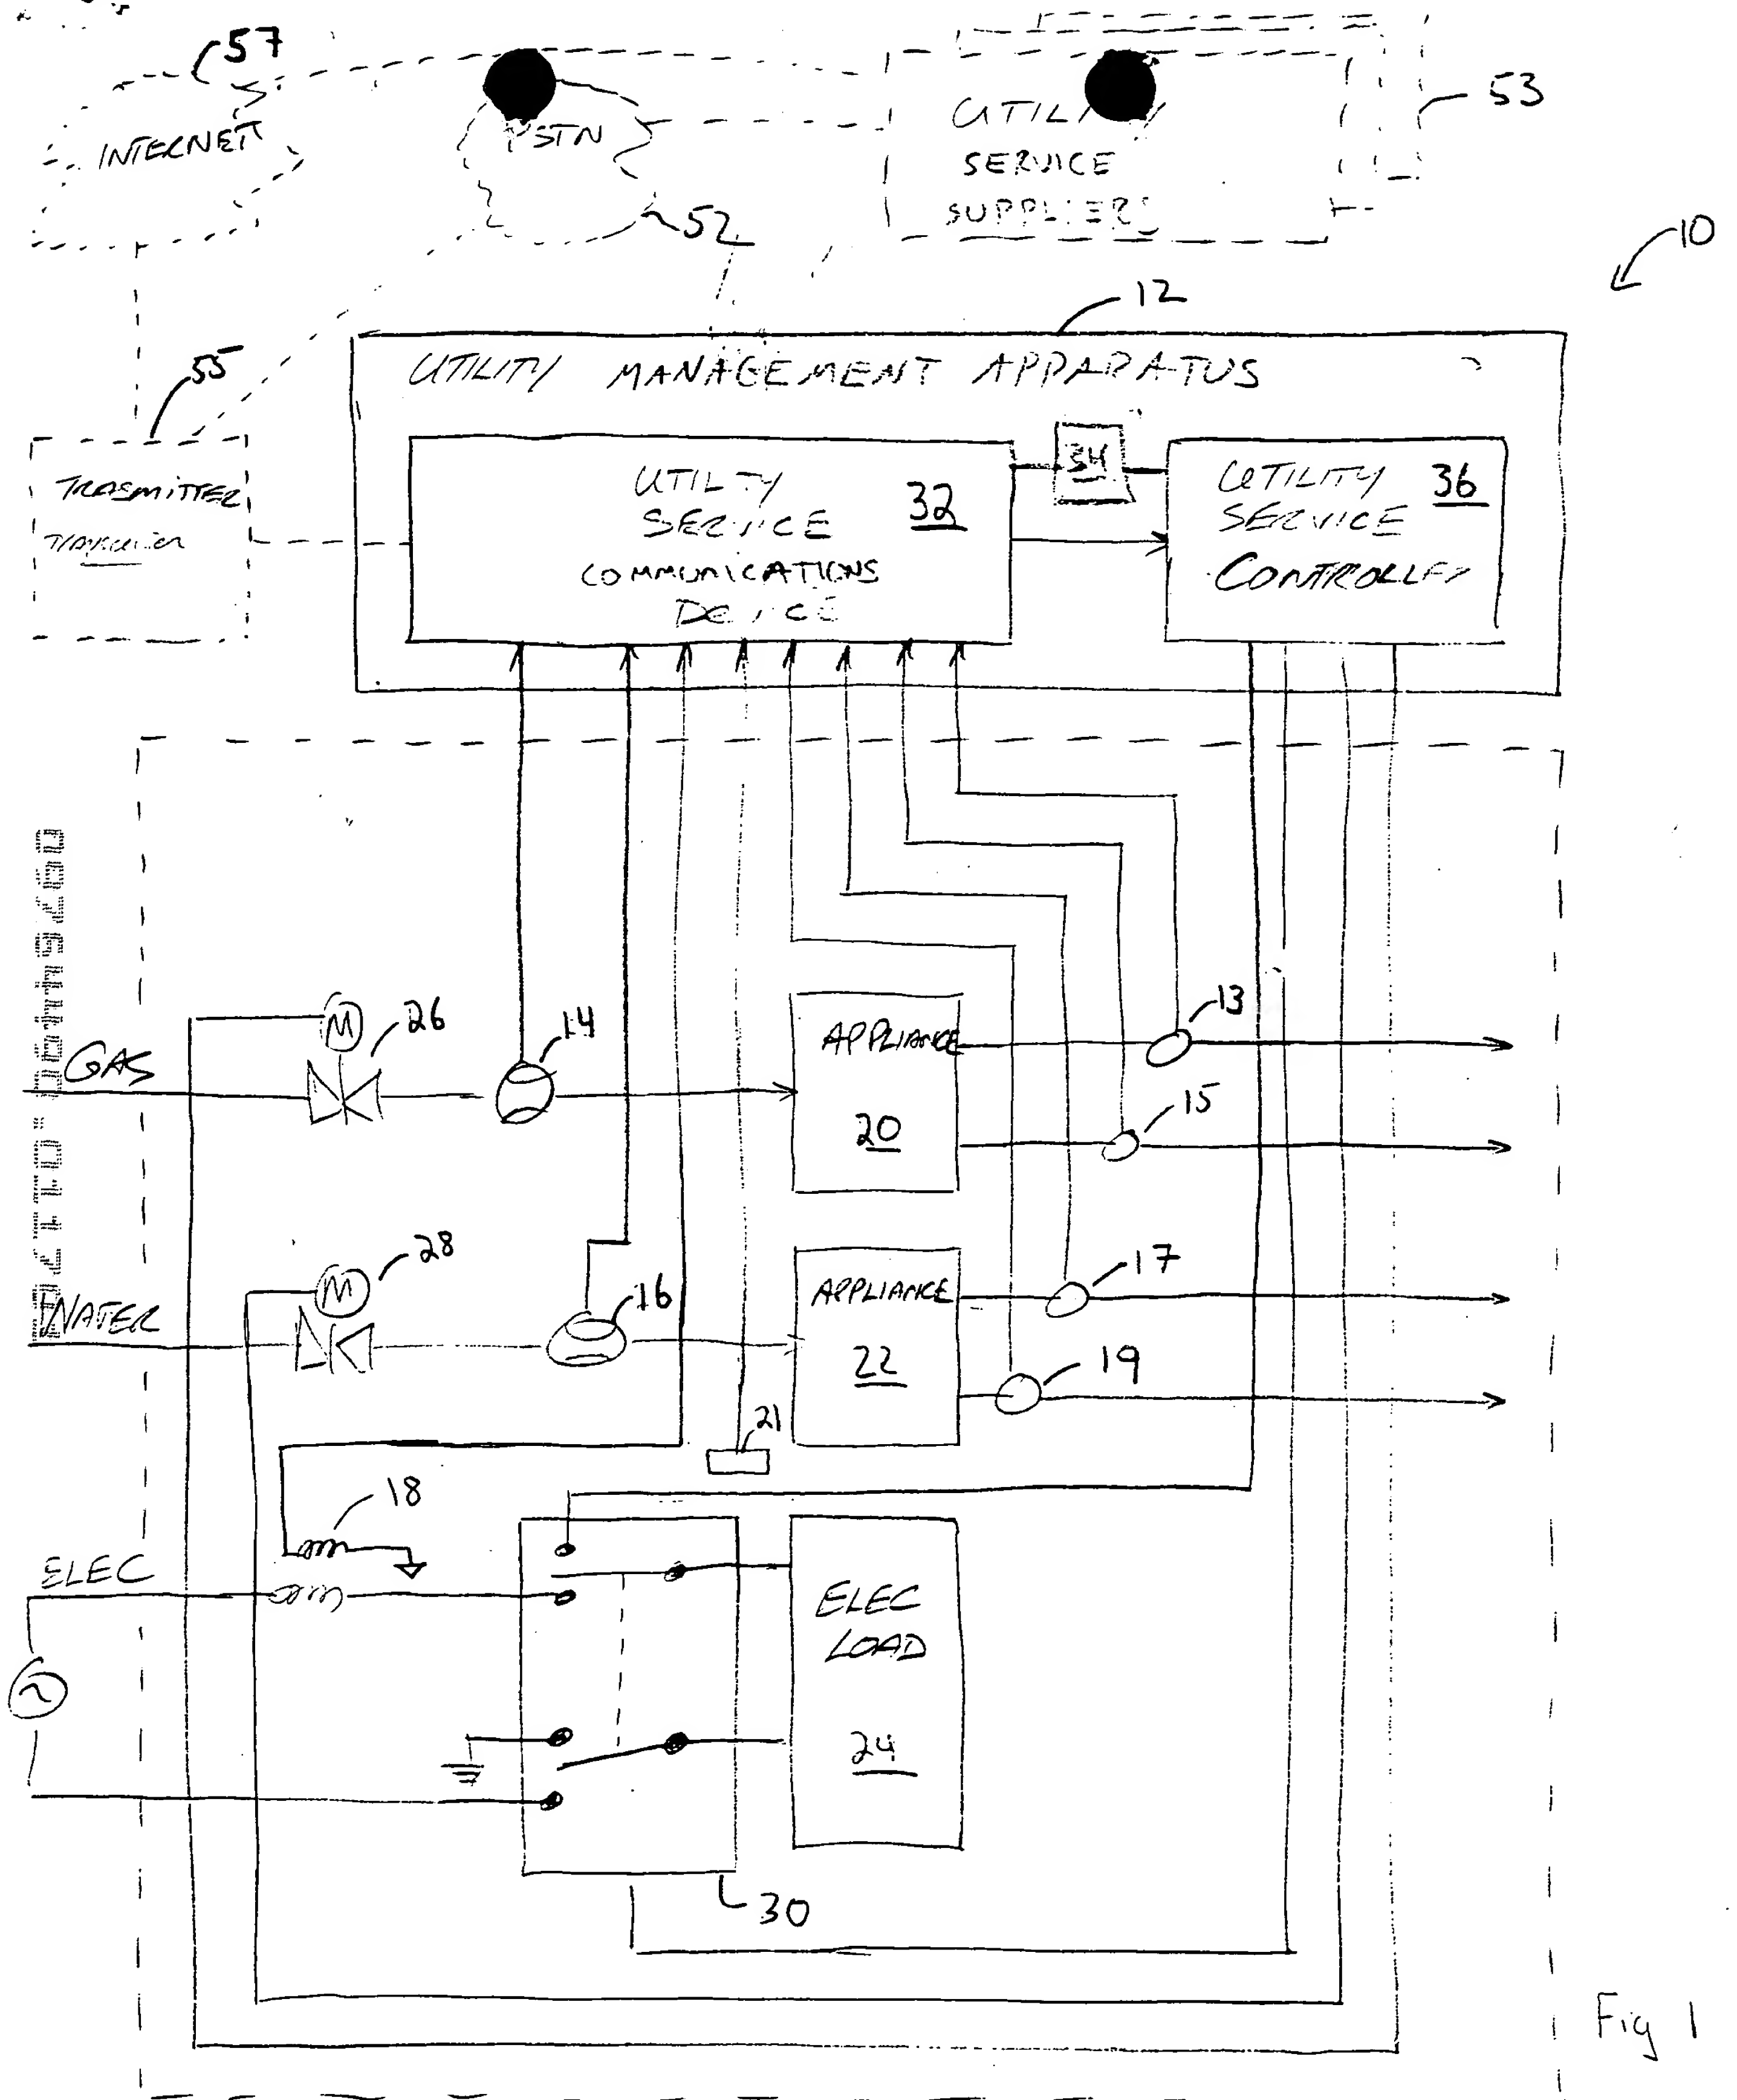 57
INTERNET
PSTN
52
UTILITY
SERVICE
SUPPLIERS
53
10
12
UTILITY MANAGEMENT APPARATUS
55
TRASMITTER
UTILTY
SERVICE
COMMUNICATIONS
DEVICE
32
34
UTILITY
SERVICE
CONTROLLER
36
GAS
M
26
14
APPLIANCE
20
13
15
WATER
M
28
16
APPLIANCE
22
17
19
21
18
ELEC
ELEC
LOAD
24
30
Fig 1